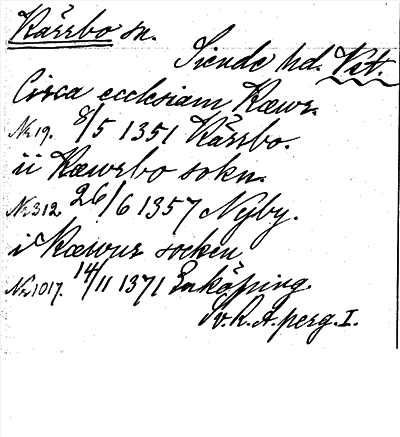 Kärrbo sn.
Siende hd. Vst.
Circa ecclesiam Kæwr.
Nr 19. 8/5 1351 Kärrbo.
ii Kæwrbo sokn.
Nr 312 26/6 1357 Nyby.
i Kæwur socken
Nr 1017. 14/11 1371 Enköping.
Sv. R. A. perg. I.